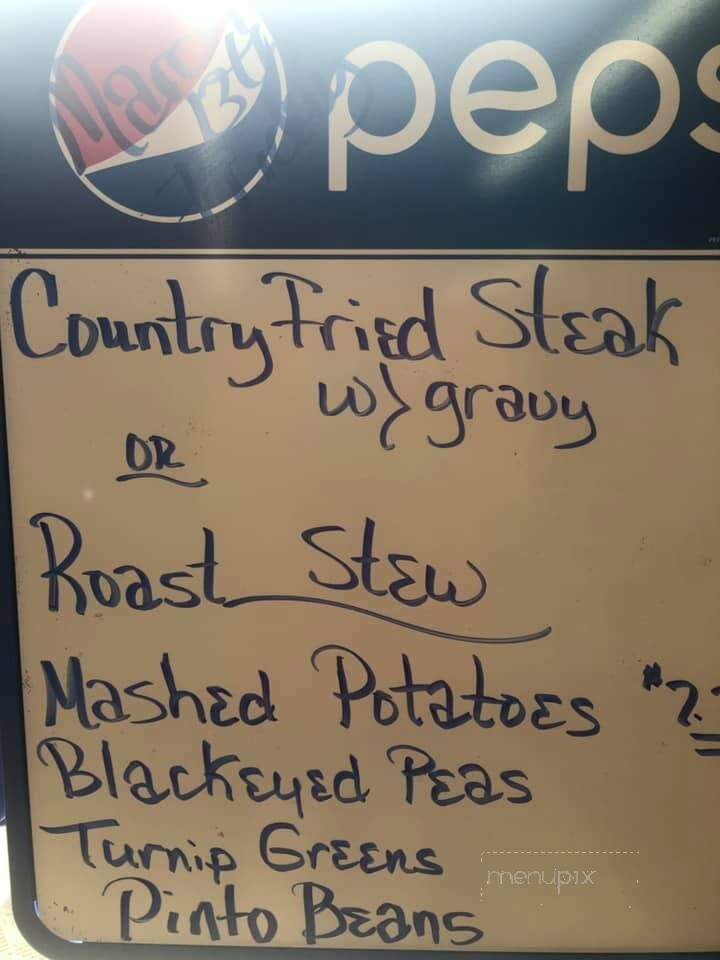 peps
Country Fried Steak
w/gravy
OR
Roast Stew
Mashed Potatoes
Blackeyed Peas
Turnip Greens
Pinto Beans
menupix